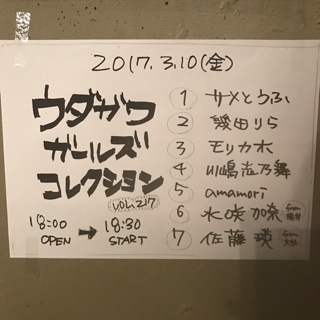 2017.3.10(金)
ウダガワ
ガールズ
コレクション
VOL.217
18:00 → 18:30
OPEN START
① サメとうふ
② 幾田りら
③ モリカ水
④ 川嶋志乃舞
⑤ amamori
⑥ 水咲加奈 from 福井
⑦ 佐藤瑛 from 大分